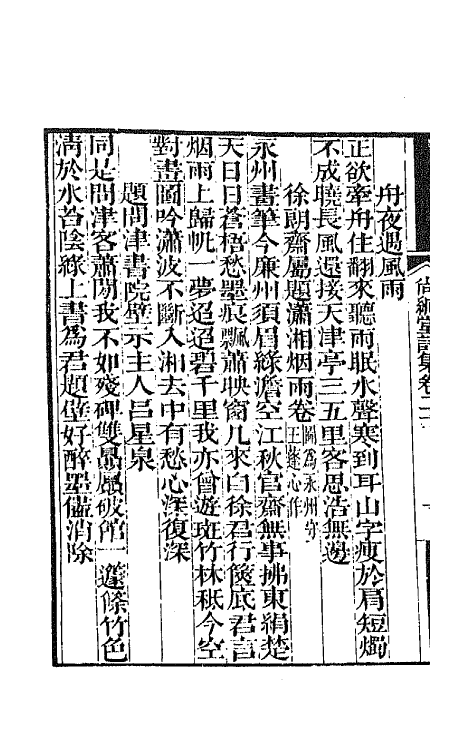 尚絅堂詩集卷二十
舟夜遇風雨
正欲牽舟住翻來聽雨眠水聲寒到耳山字瘦於肩短燭
不成曉長風還接天津亭三五里客思浩無邊
徐朗齋屬題瀟湘烟雨卷圖為永州守王蓬心作
永州畫筆今廉州須眉綠澹空江秋官齋無事拂東絹楚
天日日蒼梧愁墨痕飄蕭映窗几來自徐君行篋底君言
烟雨上歸帆一夢迢迢碧千里我亦曾遊斑竹林秪今空
對畫圖吟瀟波不斷入湘去中有愁心深復深
題問津書院壁示主人呂星泉
同是問津客蕭閒我不如殘碑雙贔屭破館一籧篨竹色
清於水苔陰綠上書為君題壁好醉墨儘消除